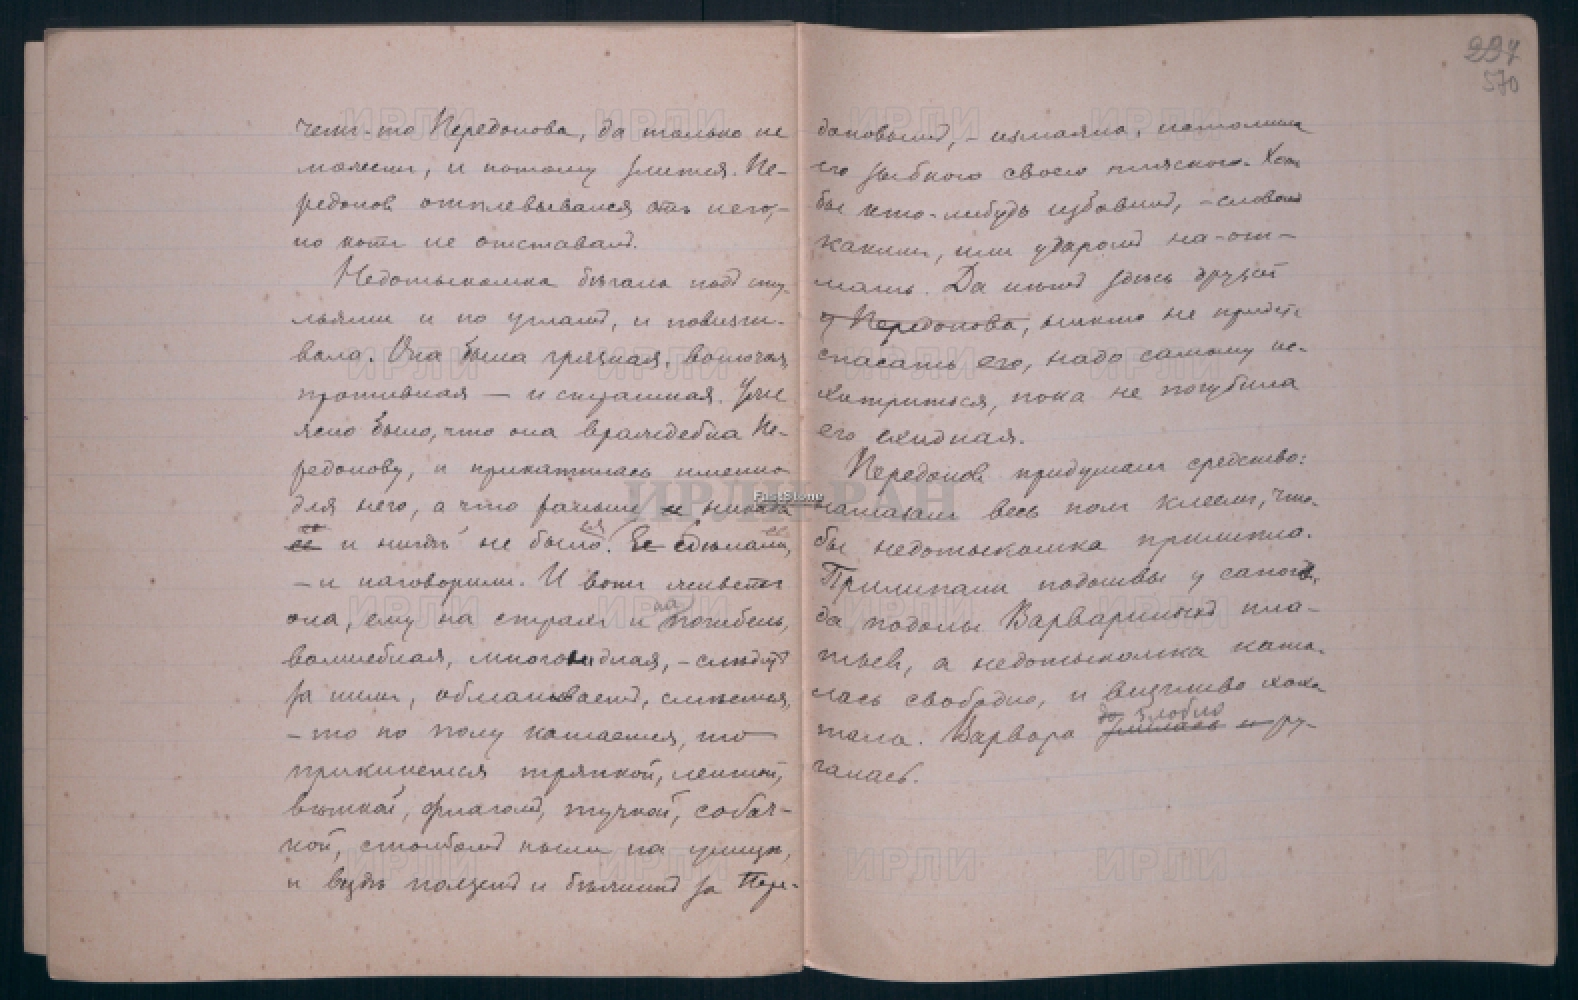 чем-то Передонова, да только не
может, и потому злится. Пе-
редонов отплевывался отъ него, –
но котъ не отставалъ.
Недотыкомка бѣгала подъ сту-
льями и по угламъ, и повизги-
вала. Она была грязная, вонючая,
противная — и страшная. Уже
ясно было, что она враждебна Пе-
редонову, и прикатилась именно
для него, а что раньше и никогда
ея
и нигдѣ не было. Ее сдѣлали,
– и наговорили. И вотъ живетъ
она, ему на страхъ и на погибель,
волшебная, многовидная, – слѣдитъ
за нимъ, обманываетъ, смѣется,
– то по полу катается, то
прикинется тряпкой, лентой,
вѣткой, флагомъ, тучкой, собач-
кой, столбомъ пыли на улицѣ,
и вездѣ ползетъ и бѣжитъ за Пере-
227
570
доновымъ, – измаяла, истомила
его зыбкою своею пляскою. Хоть
бы кто-нибудь избавилъ, – словомъ
какимъ, или ударомъ на-от-
машь. Да нѣтъ здѣсь друзей
у Передонова, никто не придетъ
спасать его, надо самому ис-
хитриться, пока не погубила
его ехидная.
Передоновъ придумалъ средство:
намазалъ весь полъ клеемъ, что-
бы недотыкомка прилипла.
Прилипали подошвы у сапогъ,
да подолы Варвариныхъ пла-
тьевъ, а недотыкомка ката-
лась свободно, и визгливо хохо-
злобно
тала. Варвара злилась и ру-
галась.
ИРЛИ РАН
FastStone